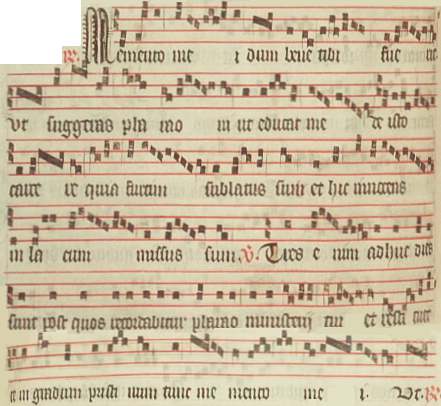 R. Memento me i dum bene tibi fue rit
ut suggeras pha rao ni ut educat me de isto
carce re quia furtim sublatus sum et hic innocens
in la cum missus sum V. Tres e nim adhuc dies
sunt post quos recordabitur pharao ministerij tui et resti tuet
te in gradum pristi num tunc me mento me i. Ut. R.